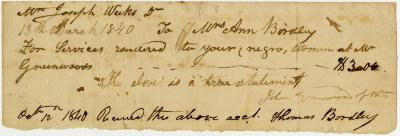 Mr Joseph Weeks Dr
13th March 1840 To Mrs Ann Bordley
For Services rendered to your negro, Women at Mr
Greenwoods $3.00
The above is a true statement
John Greenwood of
Oct 12th 1840 Received the above acct. Thomas Bordley